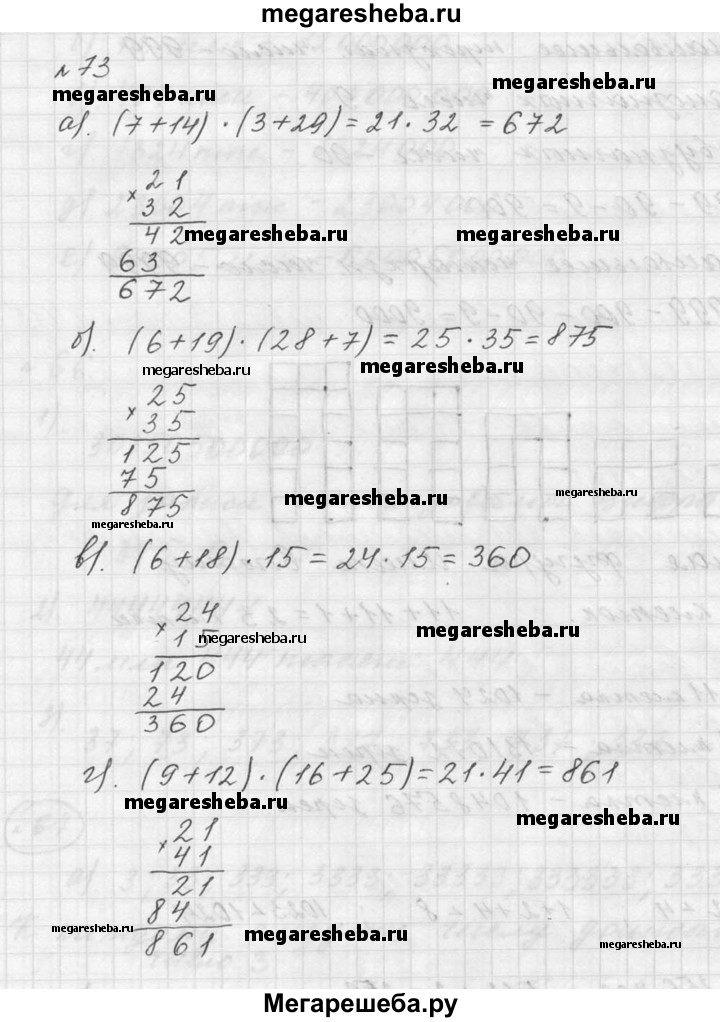 megaresheba.ru
№73
megaresheba.ru
megaresheba.ru
а). (7+14)·(3+29)=21·32 =672
×21
32
42
megaresheba.ru
megaresheba.ru
63
672
б). (6+19)·(28+7)=25·35=875
megaresheba.ru
megaresheba.ru
×25
35
125
75
875
megaresheba.ru
megaresheba.ru
в). (6+18)·15=24·15=360
×24
15
megaresheba.ru
megaresheba.ru
120
24
360
г). (9+12)·(16+25)=21·41=861
megaresheba.ru
megaresheba.ru
×21
41
21
84
861
megaresheba.ru
megaresheba.ru
megaresheba.ru
Мегарешеба.ру